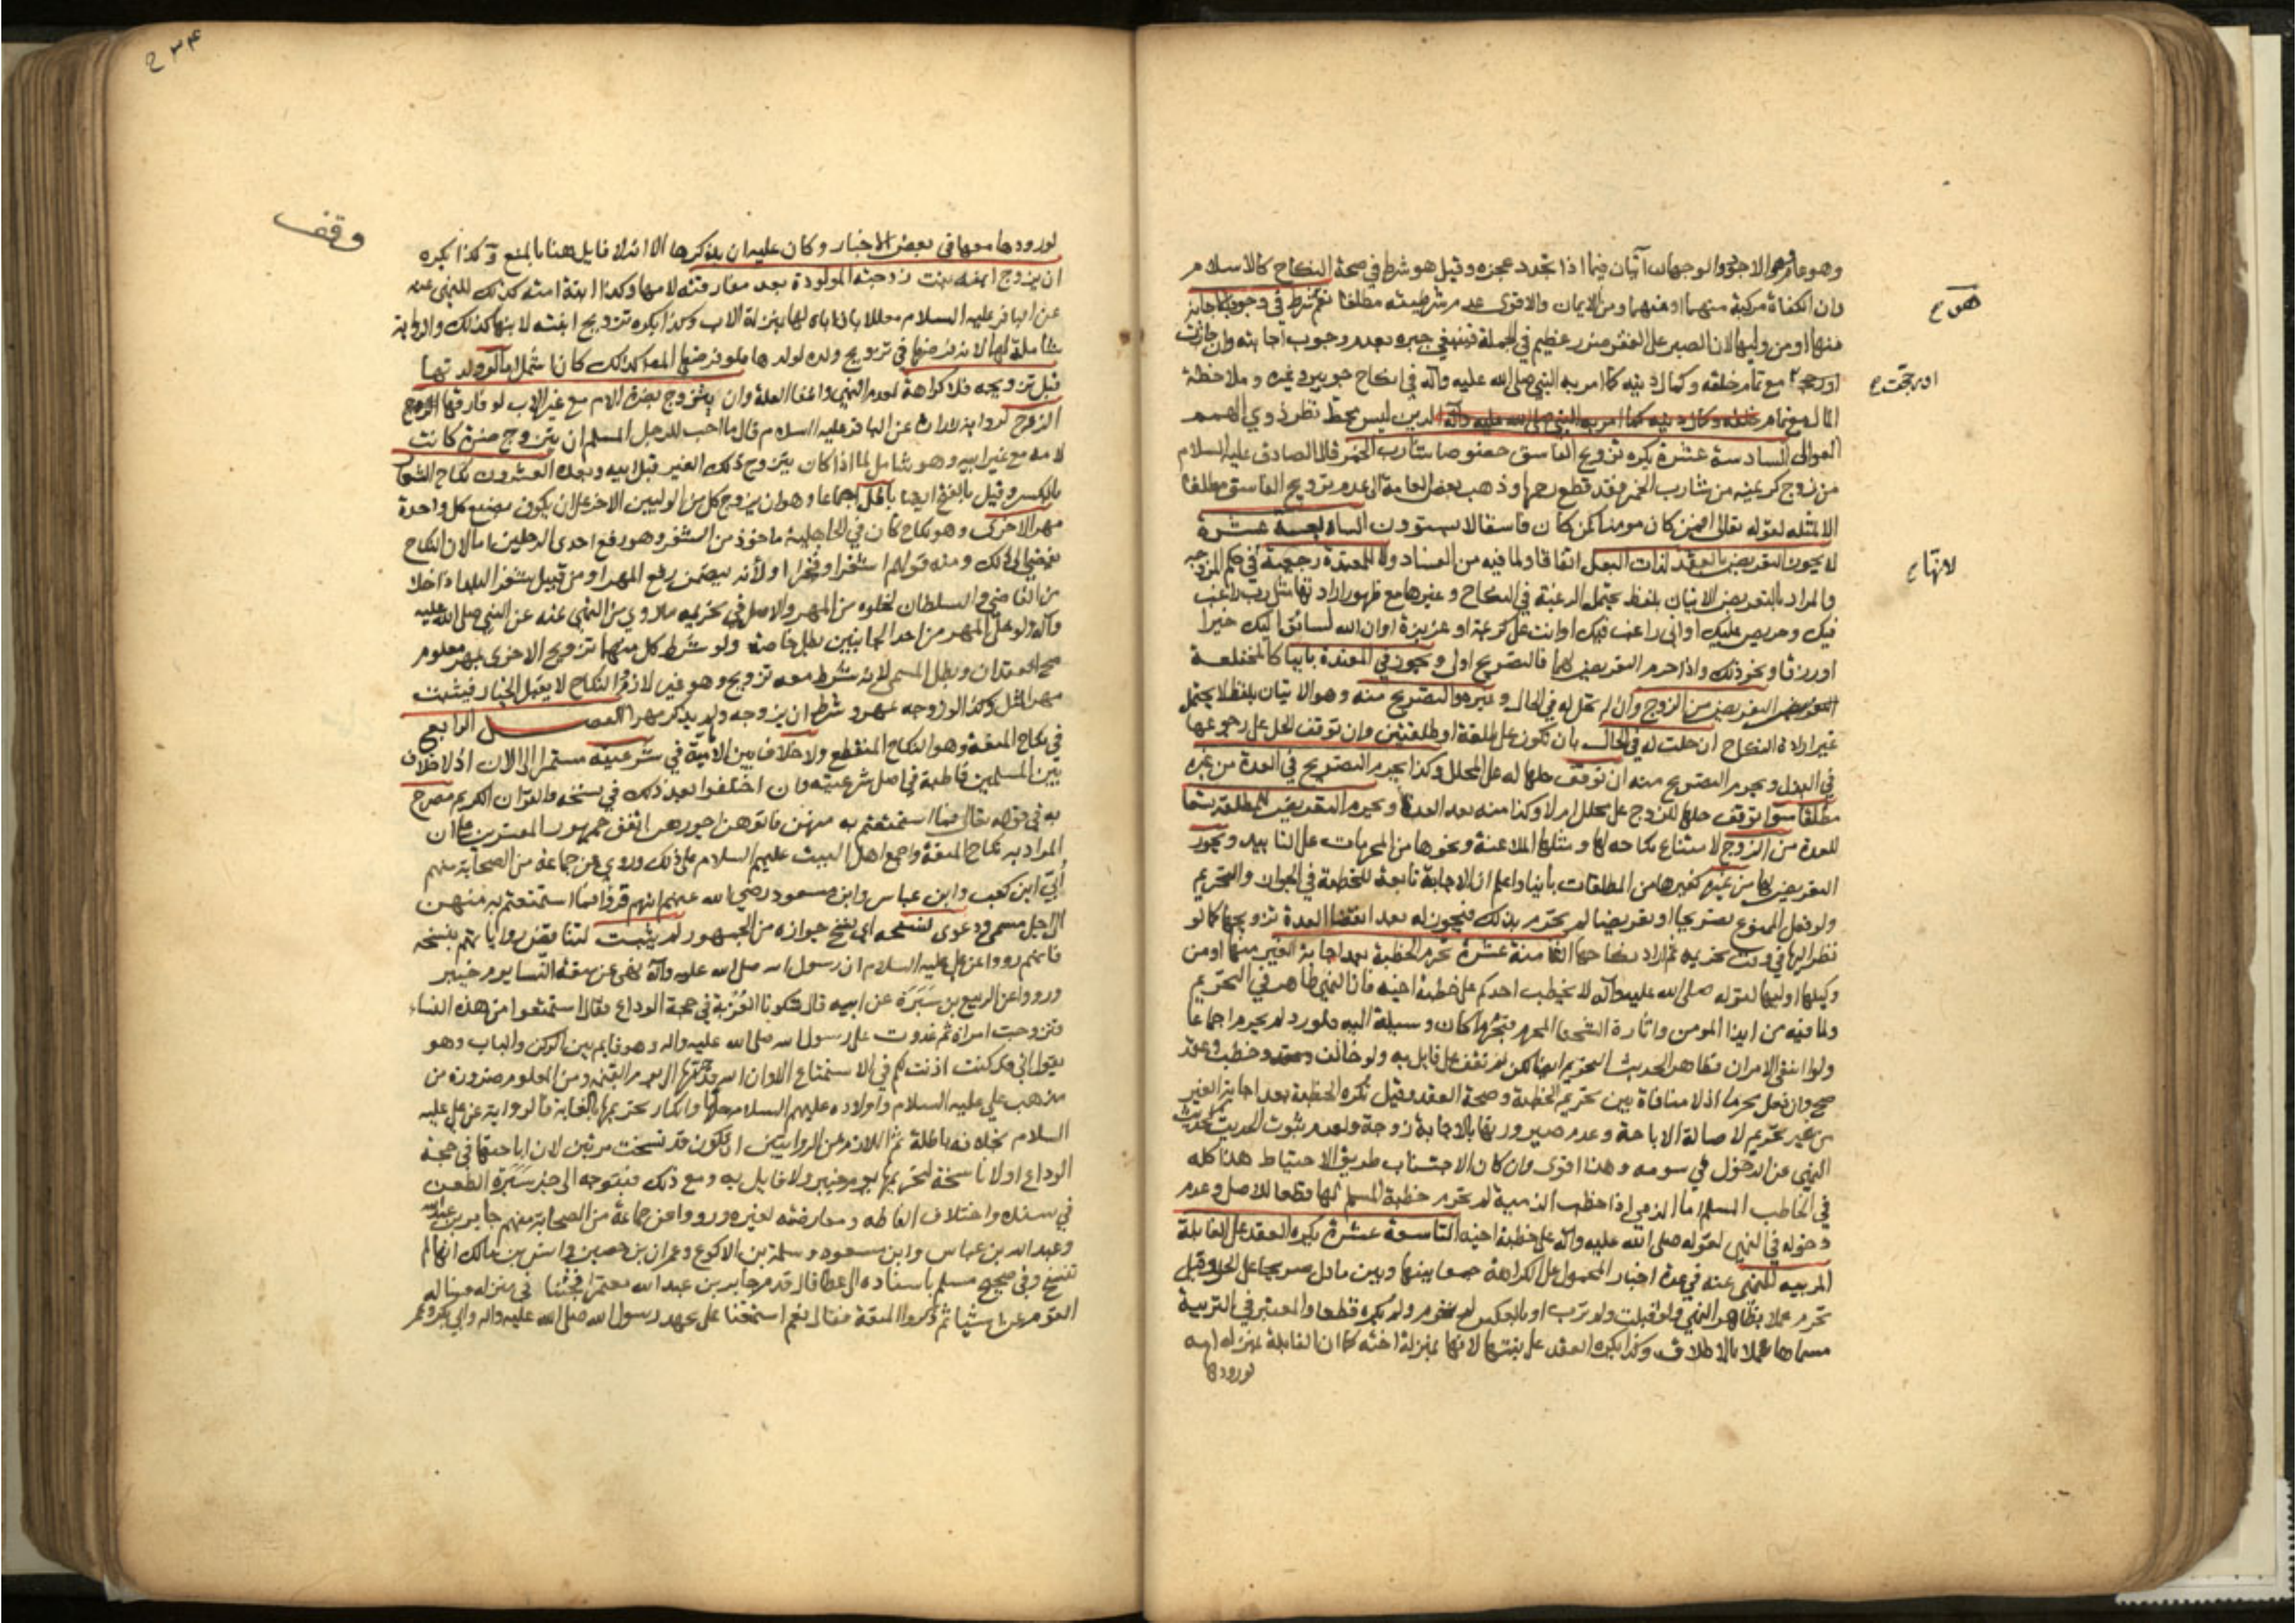 وهو عار وهو الاجود والوجهان آتيان فيما اذا تجدد عجزه وقيل هو شرط في صحة النكاح كالاسلام
هو ح
وان الكفاءة مركبة منهما او منهما ومن الايمان والاقوى عدم شرطيته مطلقا نعم هو شرط في وجوب الاجابة
منها او من وليها لان الصبر على الفقر ضرر عظيم في الجملة فينبغي جبره بعدم وجوب اجابته وان جازت
او رجحت ح
او رجحت مع تمام خلقه وكمال دينه كما امر به النبي صلى الله عليه وآله في انكاح جويبر وغيره وملاحظة
المال مع تمام خلقه وكمال دينه كما امر به النبي صلى الله عليه وآله الدين ليس محط نظر ذوي الهمم
العوالي السادسة عشرة يكره تزويج الفاسق خصوصا شارب الخمر قال الصادق عليه السلام
من زوج كريمته من شارب الخمر فقد قطع رحمها وذهب بعض العامة الى عدم تزويج الفاسق مطلقا
الا لمثله لقوله تعالى افمن كان مومنا كمن كان فاسقا لا يستوون السابعة عشرة
لا يجوز التعريض بالعقد لذات البعل اتفاقا ولما فيه من الفساد ولا للمعتدة رجعية في حكم المزوجه
لانها ح
والمراد بالتعريض الاتيان بلفظ يحتمل الرغبة في النكاح وغيرها مع ظهور ارادتها مثل رب راغب
فيك وحريص عليك او اني راغب فيك او انت علي كريمة او عزيزة او ان الله لسائق اليك خيرا
او رزقا ونحو ذلك واذا حرم التعريض لهما فالتصريح اولى ويجوز في المعتدة باينا كالمختلعة
التعريض من الزوج وان لم تحل له في الحال وغيره والتصريح منه وهو الاتيان بلفظ لا يحتمل
غير ارادة النكاح ان حلت له في الحال بان تكون على طلقة او طلقتين وان توقف الحل على رجوعها
في البذل ويحرم التصريح منه ان توقف حلها له على المحلل وكذا يحرم التصريح في العدة من غيره
مطلقا سواء توقف حلها للزوج على محلل ام لا وكذا منه بعد العدة ويحرم التعريض للمطلقة تسعا
للعدة من الزوج لامتناع نكاحه لها ومثلها الملاعنة ونحوها من المحرمات على التابيد ويجوز
التعريض لها من غيره كغيرها من المطلقات باينا واعلم ان الاجابة تابعة للخطبة في الجواز والتحريم
ولو فعل الممنوع تصريحا او تعريضا لم تحرم بذلك فيجوز له بعد انقضاء العدة تزويجها كما لو
نظر اليها في وقت تحريمه ثم اراد نكاحها الثامنة عشرة تحرم الخطبة بعد اجابة الغير منها او من
وكيلها او وليها لقوله صلى الله عليه وآله لا يخطب احدكم على خطبة اخيه فان النهي ظاهر في التحريم
ولما فيه من ايذا المومن واثارة الشحنا المحرم فيحرم ما كان وسيلة اليه ولو رد لم يحرم اجماعا
ولو انتفى الامران فظاهر الحديث التحريم ايضا لكن لم نقف على قايل به ولو خالف وخطب وعقد
صح وان فعل محرما اذ لا منافاة بين تحريم الخطبة وصحة العقد وقيل تكره الخطبة بعد اجابة الغير
من غير تحريم لاصالة الاباحة وعدم صيرورتها بالاجابة زوجة ولعدم ثبوت الحديث كحديث
النهي عن الدخول في سومه وهذا اقوى وان كان الاجتناب طريق الاحتياط هذا كله
في الخاطب المسلم اما الذمي اذا خطب الذمية لم تحرم خطبة المسلم لها قطعا للاصل وعدم
دخوله في النهي لقوله صلى الله عليه وآله على خطبة اخيه التاسعة عشرة يكره العقد على القابلة
المربيه للنهي عنه في عدة اخبار المحمول على الكراهة جمعا بينها وبين ما دل صريحا على الحل وقيل
تحرم عملا بظاهر النهي ولو قبلت ولم ترب او بالعكس لم تحرم ولم يكره قطعا والمعتبر في التربية
مسماها عملا بالاطلاق وكذا يكره العقد على بنتها لانها بمنزلة اخته كما ان القابلة بمنزله امه
لورودها
٤٣٤
وقف
لورودها معها في بعض الاخبار وكان عليه ان يذكرها الا انه لا قايل هنا بالمنع وكذا يكره
ان يزوج ابنه بنت زوجته المولودة بعد مفارقته لامها وكذا ابنة امته كذلك للنهي عنه
عن الباقر عليه السلام معللا بان اباه لها بمنزلة الاب وكذا يكره تزويج ابنته لابنها كذلك والرواية
شاملة لها لانه فرضها في تزويج ولده لولدها فلو فرضها المص كذلك كان اشمل اما لو ولدتهما
قبل تزويجه فلا كراهة لعدم النهي وانتفا العلة وان يتزوج بضرة الام مع غير الاب لو فارقها الزوج
لرواية زرارة عن الباقر عليه السلام قال ما احب للرجل المسلم ان يتزوج ضرة كانت
لامه مع غير ابيه وهو شامل لما اذا كان يتزوج ذلك الغير قبل ابيه وبعده العشرون نكاح الشغار
بالكسر وقيل بالفتح ايضا باطل اجماعا وهو ان يزوج كل من الوليين الاخر على ان يكون بضع كل واحدة
مهر الاخرى وهو نكاح كان في الجاهلية ماخوذ من الشغر وهو رفع احدى الرجلين اما لان النكاح
يفضي الى ذلك ومنه قولهم اشغرا وفخرا او لانه يتضمن رفع المهر او من قبيل شغر البلد اذا خلا
من القاضي والسلطان لخلوه من المهر والاصل في تحريمه ما روي من النهي عنه عن النبي صلى الله عليه
وآله ولو خلى المهر من احد الجانبين بطل خاصة ولو شرط كل منهما تزويج الاخرى بمهر معلوم
صح العقدان وبطل المسمى لانه شرط معه تزويج وهو غير لازم والنكاح لا يقبل الخيار فيثبت
مهر المثل وكذا لو زوجه بمهر وشرط ان يزوجه ولم يذكر مهرا الفصل الرابع
في نكاح المتعة وهو النكاح المنقطع ولا خلاف بين الامامية في شرعيته مستمرا الى الان اذ لا خلاف
بين المسلمين قاطبة في اصل شرعيته وان اختلفوا بعد ذلك في نسخه والقرآن الكريم مصرح
به في قوله تعالى فما استمتعتم به منهن فاتوهن اجورهن اتفق جمهور المفسرين على ان
المراد به نكاح المتعة واجمع اهل البيت عليهم السلام على ذلك وروي عن جماعة من الصحابة منهم
أبي ابن كعب وابن عباس وابن مسعود رضي الله عنهم انهم قروا فما استمتعتم به منهن
الى اجل مسمى ودعوى نسخه اي نسخ جوازه من الجمهور لم يثبت لتناقض رواياتهم بنسخه
فانهم رووا عن علي عليه السلام ان رسول الله صلى الله عليه وآله نهى عن متعة النسا يوم خيبر
ورووا عن الربيع بن سَبَرَة عن ابيه قال شكونا العُزْبة في حجة الوداع فقال استمتعوا من هذه النساء
فتزوجت امراة ثم غدوت على رسول الله صلى الله عليه واله وهو قايم بين الركن والباب وهو
يقول اني قد كنت اذنت لكم في الاستمتاع الا وان الله قد حرمها الى يوم القيمة ومن المعلوم ضرورة من
مذهب علي عليه السلام واولاده عليهم السلام حلها وانكار تحريمها بالغاية فالرواية عن علي عليه
السلام بخلافه باطلة ثم اللازم من الروايتين ان تكون قد نسخت مرتين لان اباحتها في حجة
الوداع اولا ناسخة لتحريمها يوم خيبر ولا قايل به ومع ذلك فيتوجه الى خبر سَبَرَة الطعن
في سنده واختلاف الفاظه ومعارضته لغيره ورووا عن جماعة من الصحابة منهم جابر بن عبد الله
وعبد الله بن عباس وابن مسعود وسلمة بن الاكوع وعمران بن حصين وانس بن مالك انها لم
تنسخ وفي صحيح مسلم باسناده الى عطا قال قدم جابر بن عبد الله معتمرا فجئنا في منزله فساله
القوم عن اشيا ثم ذكروا المتعة فقال نعم استمتعنا على عهد رسول الله صلى الله عليه واله وابي بكر وعمر